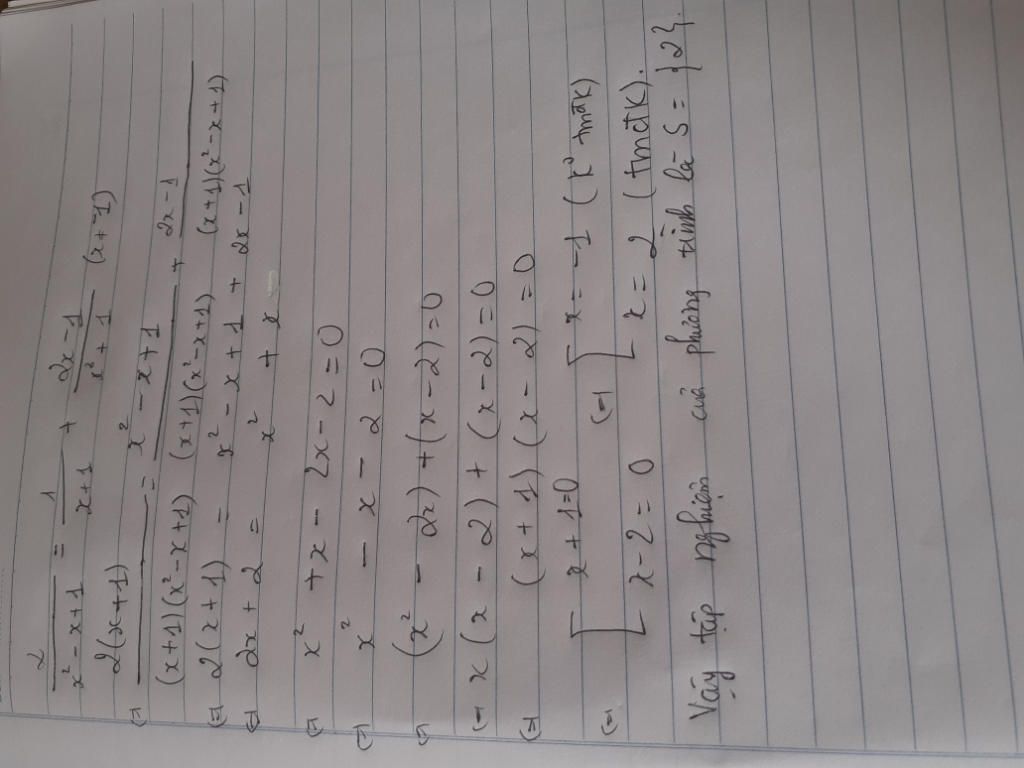 2/(x² - x + 1) = 1/(x+1) + (2x - 1)/(x³ + 1) (x ≠ -1)
(=) 2(x+1)/((x+1)(x² - x + 1)) = (x² - x + 1)/((x+1)(x² - x + 1)) + (2x - 1)/((x+1)(x² - x + 1))
(=) 2(x+1) = x² - x + 1 + 2x - 1
(=) 2x + 2 = x² + x
(=) x² + x - 2x - 2 = 0
(=) x² - x - 2 = 0
(=) (x² - 2x) + (x - 2) = 0
(=) x(x - 2) + (x - 2) = 0
(=) (x + 1)(x - 2) = 0
(=) [ x + 1 = 0 (=) [ x = -1 (k° tmđk)
[ x - 2 = 0 [ x = 2 (tmđk).
Vậy tập nghiệm của phương trình là S = {2}